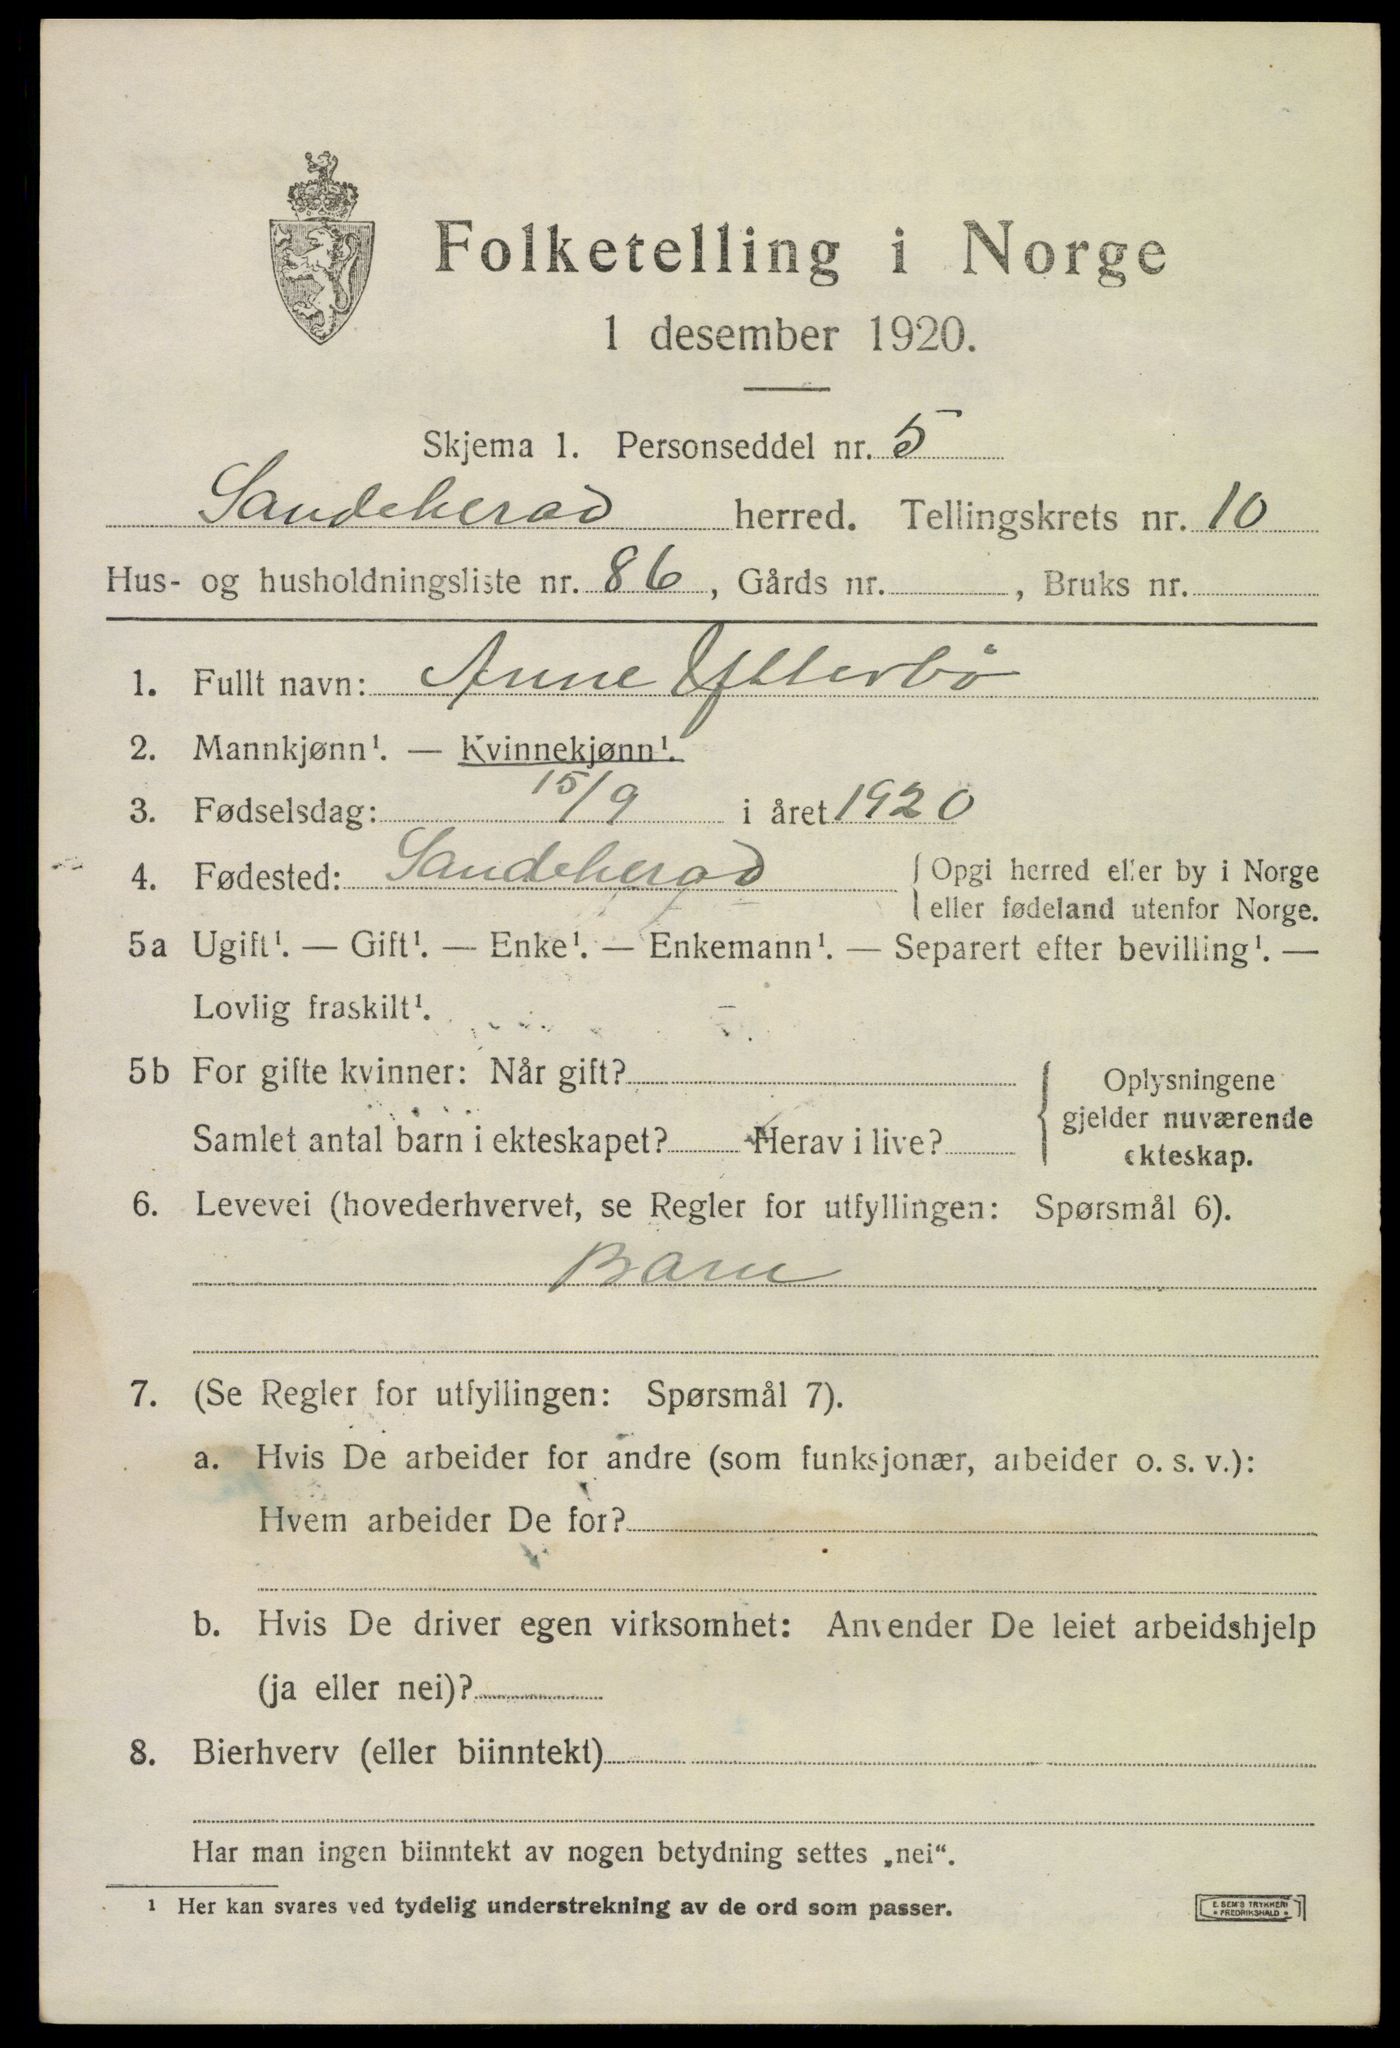 Folketelling i Norge
1 desember 1920.
Skjema 1. Personseddel nr. 5
Sandeherad herred. Tellingskrets nr. 10
Hus- og husholdningsliste nr. 86, Gårds nr. , Bruks nr.
1. Fullt navn: Anne Ytterbø
2. Mannkjønn¹. — Kvinnekjønn¹.
3. Fødselsdag: 15/9 i året 1920
4. Fødested: Sandeherad { Opgi herred eller by i Norge
eller fødeland utenfor Norge.
5a Ugift¹. — Gift¹. — Enke¹. — Enkemann¹. — Separert efter bevilling¹. —
Lovlig fraskilt¹.
5b For gifte kvinner: Når gift?
Samlet antal barn i ekteskapet? Herav i live?
{ Oplysningene
gjelder nuværende
ekteskap.
6. Levevei (hovederhvervet, se Regler for utfyllingen: Spørsmål 6).
Barn
7. (Se Regler for utfyllingen: Spørsmål 7).
a. Hvis De arbeider for andre (som funksjonær, arbeider o. s. v.):
Hvem arbeider De for?
b. Hvis De driver egen virksomhet: Anvender De leiet arbeidshjelp
(ja eller nei)?
8. Bierhverv (eller biinntekt)
Har man ingen biinntekt av nogen betydning settes „nei“.
¹ Her kan svares ved tydelig understrekning av de ord som passer.
E. SEM'S TRYKKERI
• FREDRIKSHALD •